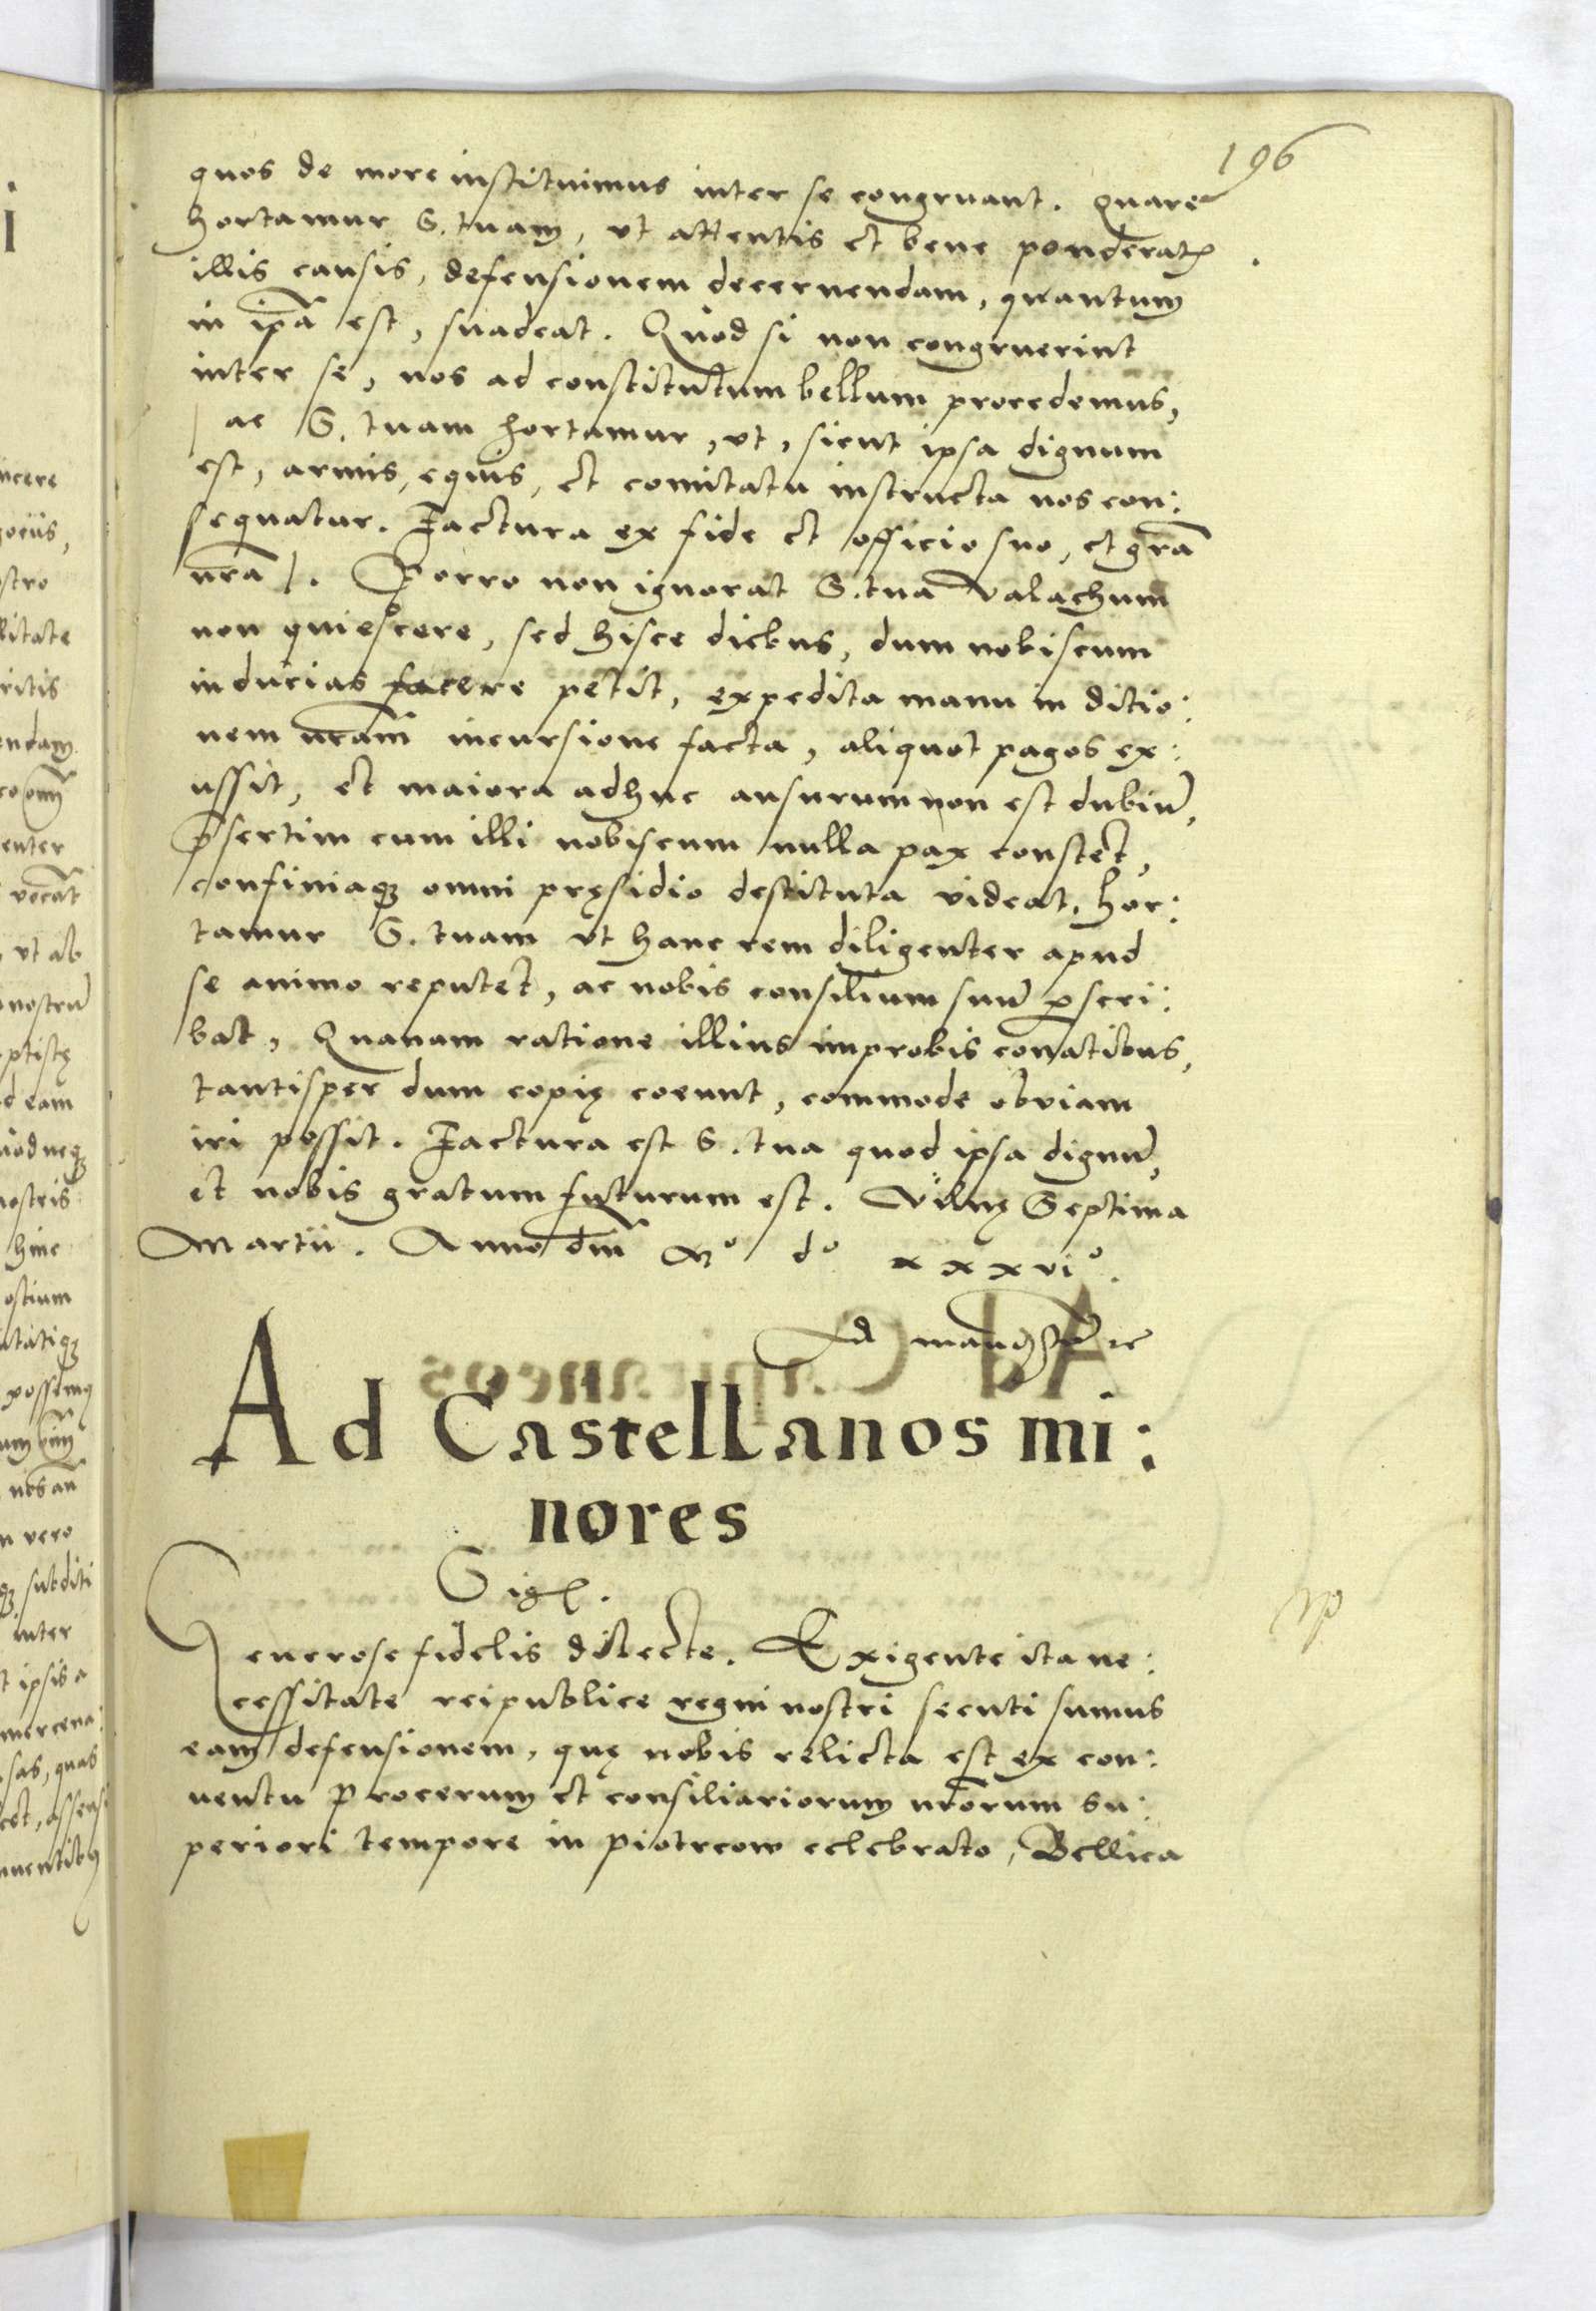 196
quos de more instituimus inter se congruant. Quare
hortamur S. tuam, ut attentis et bene ponderatis
illis causis, defensionem decernendam, quantum
in ip̃a est, suadeat. Quod si non congruerint
inter se, nos ad constitutum bellum procedemus,
ac S. tuam hortamur, ut, sicut ipsa dignum
est, armis, equis, et comitatu instructa nos con:
sequatur. Factura ex fide et officio suo, et gr̃a
nr̃a. Porro non ignorat S. tua Valachum
non quiescere, sed hisce diebus, dum nobiscum
inducias facere petit, expedita manu in ditio:
nem nr̃am incursione facta, aliquot pagos ex:
ussit, et maiora adhuc ausurum non est dubiũ,
p̃sertim cum illi nobiscum nulla pax constet,
confiniaq; omni pręsidio destituta videat. Hor:
tamur S. tuam ut hanc rem diligenter apud
se animo reputet, ac nobis consilium suũ p̱scri:
bat, Quanam ratione illius improbis conatibus,
tantisper dum copię coeunt, commode obviam
iri possit. Factura est S. tua quod ipsa dignũ,
et nobis gratum futurum est. Vilnę Septima
Martii. Anno Dm̃ Mº dº xxxviº.
Ad mand
Ad Castellanos mi:
nores
Sig
Generose fidelis dilecte. Exigente ita ne:
cessitate reipublice regni nostri secuti sumus
eam defensionem, quę nobis relicta est ex con:
ventu Procerum et consiliariorum nr̃orum su:
periori tempore in Piotrcow celebrato, Bellica